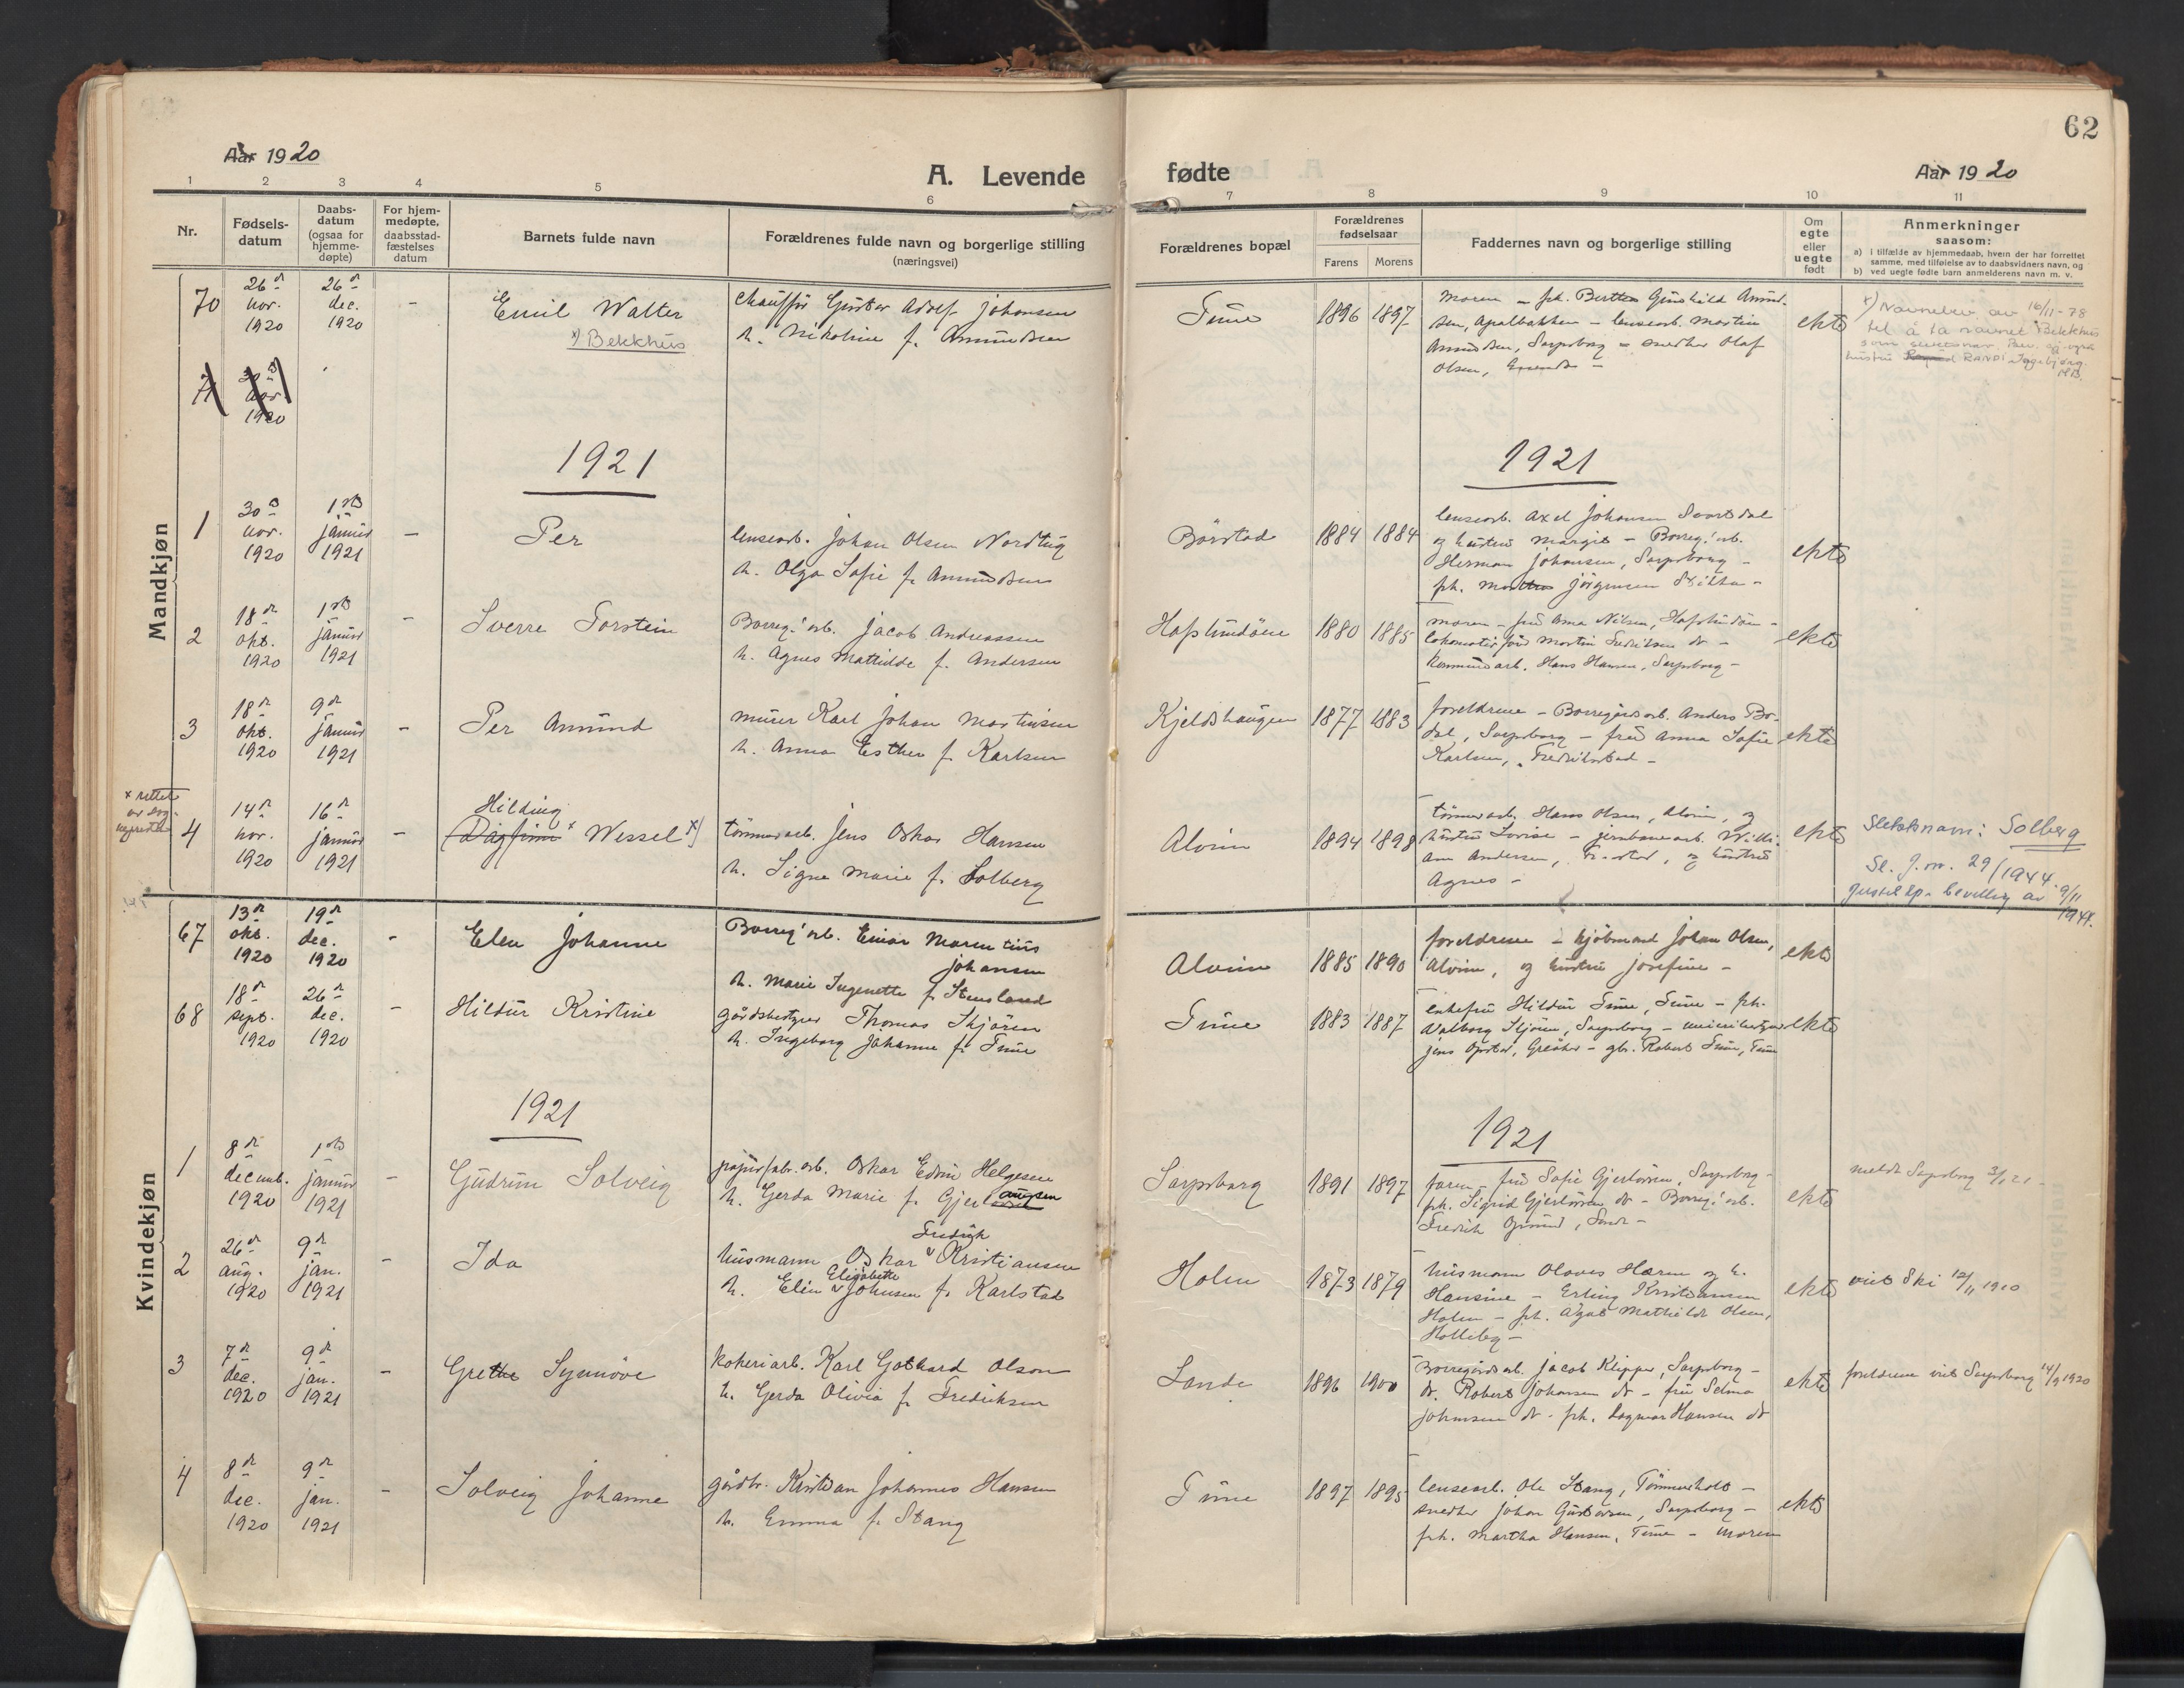 62
Aar 1920
A. Levende fødte
Aar 1920
1 2 3 4 5 6 7 8 9 10 11
Nr.
Fødsels-
datum
Daabs-
datum
(ogsaa for
hjemme-
døpte)
For hjem-
medøpte,
daabsstad-
fæstelses
datum
Barnets fulde navn
Forældrenes fulde navn og borgerlige stilling
(næringsvei)
Forældrenes bopæl
Forældrenes
fødselsaar
Farens Morens
Faddernes navn og borgerlige stilling
Om
egte
eller
uegte
født
Anmerkninger
saasom:
a) i tilfælde av hjemmedaab, hvem der har forrettet
samme, med tilføielse av to daabsvidners navn, og
b) ved uegte fødte barn anmelderens navn m. v.
Mandkjøn
70
26de
nov.
1920
26de
dec.
1920
-
Emil Walter
x) Bekkhus
chauffør Gustav Adolf Johansen
h. Nikoline f. Amundsen
Tune
1896 1897
moren - frk. Berthea Gunhild Amund-
sen, Apalbakken - lensearb. Martin
Amundsen, Sarpsborg - snedker Olaf
Olsen,
ekte
x) Navnebev. av 16/11-78
til å ta navnet Bekkhus
som slektsnavn. Bev. og
hustru RANDI Ingebjørg
71
30
nov
1920
1921
1921
1
30
nov.
1920
1ste
januar
1921
-
Per
lensearb. Johan Olsen Nordtug
h. Olga Sofie f. Amundsen
Börstad
1884 1884
lensearb. Axel Johansen
og hustru Margit - Borreg. arb.
Herman Johansen, Sarpsborg -
frk. Marthea Jörgensen
ekte
2
18de
okt.
1920
1ste
januar
1921
-
Sverre Torstein
Borreg. arb. Jacob Andreassen
h. Agnes Mathilde f. Andersen
Hafslundöen
1880 1885
moren - fru Anna Nilsen, Hafslundöen -
lokomotivförer Martin Fredriksen do -
kommunearb. Hans Hansen, Sarpsborg -
ekte
3
18de
okt.
1920
9de
januar
1921
-
Per Amund
murer Karl Johan Martinsen
h. Anna Esther f. Karlsen
Kjeldshaugen
1877 1883
foreldrene - Borregårdsarb. Anders Bo-
dal, Sarpsborg - fru Anna Sofie
Karlsen, Fredrikstad -
ekte
x rettet
av sog-
nepresten
4
14de
nov.
1920
16de
januar
1921
-
Hilding
Dagfinn x Wessel x)
tömmerarb. Jens Oskar Hansen
h. Signe Marie f. Solberg
Alvim
1894 1898
tömmerarb. Hans Olsen, Alvim, og
hustru Lovise - jernbanearb. Willi-
am Andersen, Fr.stad, og hustru
Agnes -
ekte
Slektsnavn: Solberg
Se. J. nr. 29/1944.
Justisdep. bevilling av 9/11
1944.
Kvindekjøn
67
13de
okt.
1920
19de
dec.
1920
-
Elen Johanne
Borreg. arb. Einar Marentius
Johansen
h. Marie Ingenette f. Stensland
Alvim
1885 1890
foreldrene - kjöbmand Johan Olsen,
Alvim, og hustru Josefine -
ekte
68
18de
sept.
1920
26de
dec.
1920
-
Hildur Kristine
gårdsbestyrer Thomas Skjören
h. Ingeborg Johanne f. Tune
Tune
1883 1887
enkefru Hildur Tune, Tune - frk.
Valborg Skjören, Sarpsborg - meieribestyrer
Jens Opstad, Greåker - gbr. Robert Tune, Tune
ekte
1921
1921
1
8de
decemb.
1920
1ste
januar
1921
-
Gudrun Solveig
papirfabr. arb. Oskar Edvin Helgesen
h. Gerda Marie f. Gjerlaugsen
Sarpsborg
1891 1897
faren - fru Sofie Gjerlövsen, Sarpsborg -
frk. Sigrid Gjerlövsen do - Borreg. arb.
Fredrik
ekte
meldt Sarpsborg 3/1 21 -
2
26de
aug.
1920
9de
jan.
1921
-
Ida
Fredrik
husmann Oskar v Kristiansen
Elisabeth
h. Elin v Johnsen f. Karlstad
Holm
1873 1879
husmann Olaves Haren og h.
Hansine - Erling Kristiansen
Holm - frk. Agnes Mathilde Olsen,
Holleby -
ekte
viet Ski 12/11 1910
3
7de
dec.
1920
9de
jan.
1921
-
Grethe Synnöve
kokeriarb. Karl Gothard Olson
h. Gerda Olivia f. Fredriksen
Sande
1896 1900
Borregårdsarb. Jacob Klipper, Sarpsborg -
do. Robert Johansen do - fru Selma
Johansen do - frk. Dagmar Hansen do
ekte
foreldrene viet Sarpsborg 14/9 1920
4
8de
dec.
1920
9de
jan.
1921
-
Solveig Johanne
gårdbr. Kristian Johannes Hansen
h. Emma f. Stang
Tune
1897 1895
lensearb. Ole Stang, Tömmerholt -
snedker Johan Gustavsen, Sarpsborg -
frk. Martha Hansen, Tune - moren
ekte